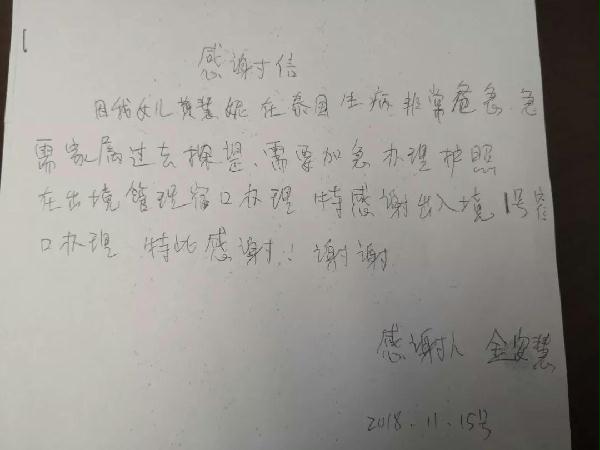 感谢信
因我女儿黄慧妮在泰国生病非常危急、急
需家属过去探望、需要加急办理护照
在出境管理窗口办理 特感谢出入境1号窗
口办理 特此感谢！谢谢
感谢人 金安慧
2018.11.15号